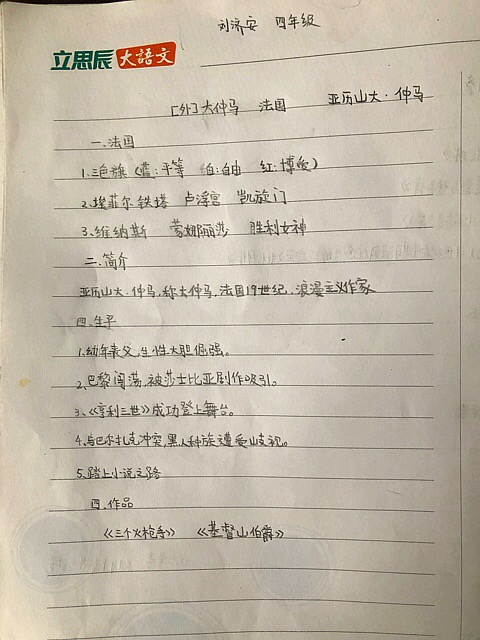 刘济安 四年级
立思辰大语文
[外]大仲马 法国 亚历山大·仲马
一.法国
1.三色旗(蓝:平等 白:自由 红:博爱)
2.埃菲尔铁塔 卢浮宫 凯旋门
3.维纳斯 蒙娜丽莎 胜利女神
二.简介
亚历山大·仲马,称大仲马,法国19世纪,浪漫主义作家
四.生平
1.幼年丧父,生性大胆倔强。
2.巴黎闯荡,被莎士比亚剧作吸引。
3.《亨利三世》成功登上舞台。
4.与巴尔扎克冲突,黑人种族遭受歧视。
5.踏上小说之路
四.作品
《三个火枪手》 《基督山伯爵》